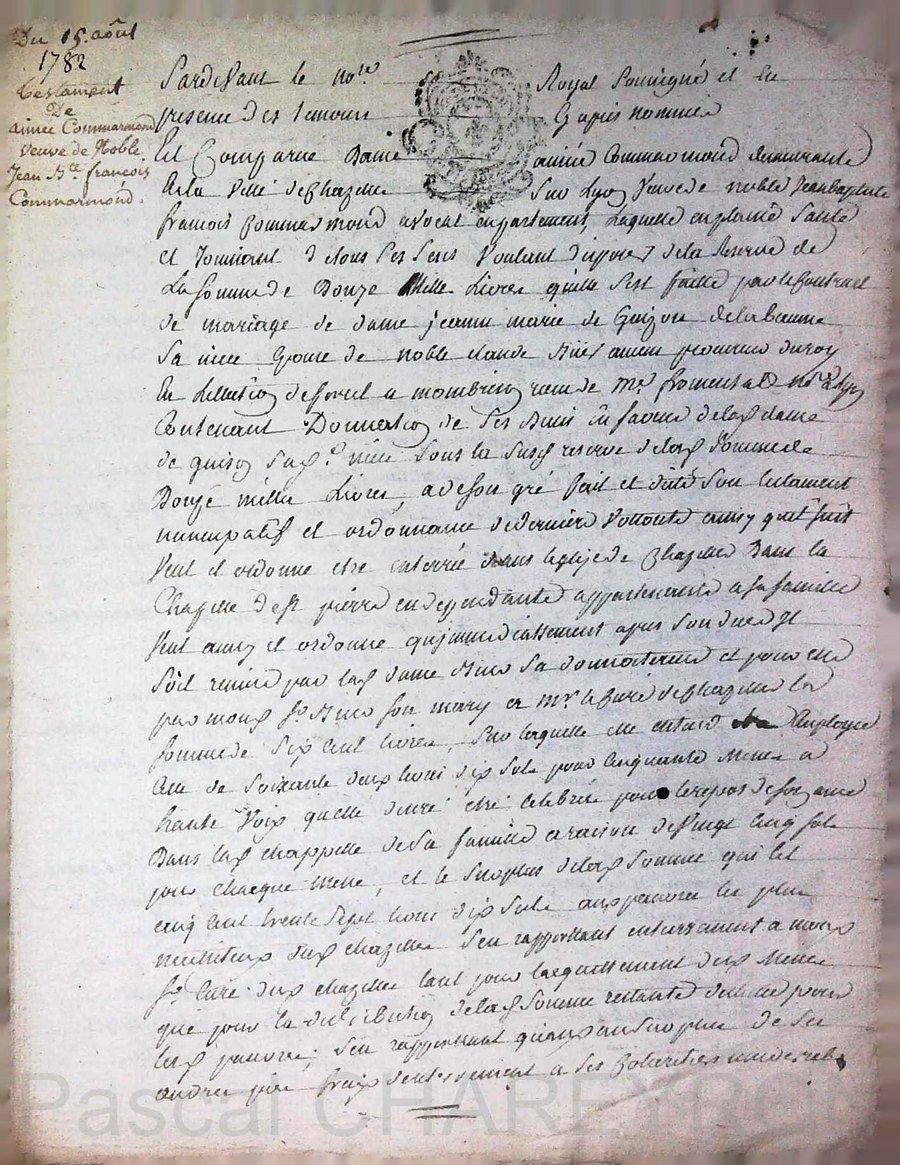 Du 15. août
1782
testament
De
aimée Commarmond
veuve de Noble
Jean Bte. françois
Commarmond.
Pardevant le nore Royal soussigné et en
presence des temoins cy apres nommés
Est Comparue Dame aimée Commarmond demeurante
en la ville de chazelle sur Lyon veuve de noble Jean baptiste
francois Commarmond avocat en parlement, laquelle en pleine santé
et Jouissant de tous ses sens voulant disposer de la reserve de
La somme de Douze Mille Livres qu'elle s'est faitte par le contract
de mariage de dame jeanne marie de Guizon de la baume
sa niece epouse de noble claude ancien procureur du roy
en L'ellection de forest a mombrison recu de Mr. fromental nore a Lyon
Contenant Donnation de ses Biens en faveur de lad. dame
de sad. niece sous la susd reserve de lad. somme de
Douze mille Livres, a de son gré fait et dicté son testament
nuncupatif et ordonnance de derniere vollonté ainsy quil suit
Veut et ordonne etre enterrée dans leglise de chazelle dans la
Chapelle de st pierre en deppendante appartenante a sa famille
Veut aussy et ordonne qu'immediattement apres son decès Il
soit remis par lad. dame sa donnataire et pour elle
par monsr son mary a Mr. le Curé de chazelle la
somme de six cent livres, sur laquelle elle entend employée
celle de soixante deux livres dix sols pour cinquante Messes a
haute voix quelle desire etre celebrées pour le repos de son ame
Dans lad chappelle de sa famille a raison de vingt cinq sols
pour chaque messe, et le surplus de lad. somme qui est
cinq cent trente sept livres dix sols aux pauvres les plus
necessiteux dud chazelle s'en rapportant entierement a mons
sr. Curé dud chazelle tant pour lacquittement desd. Messes
que pour la distribution de lad. somme restante destinée pour
lesd pauvres; s'en rapportant quant au surplus de ses
frais d'enterrement a ses
Pascal CHAREYRON